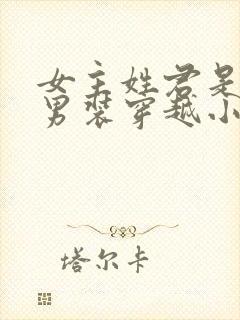 女主姓君是
男装穿越小
塔尔卡